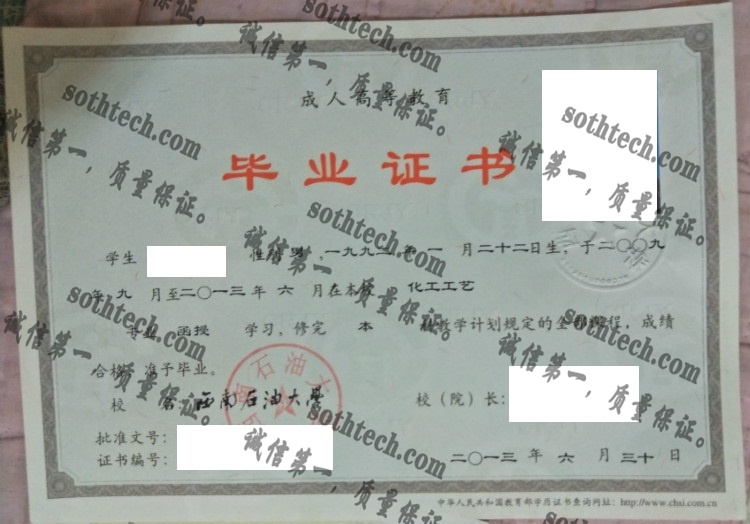 成人高等教育
毕业证书
学生 性别 男,一九九二年 一 月二十二日生,于二〇〇九
年 九 月至二〇一三年 六 月在本校 化工工艺
专业 函授 学习,修完 本 科教学计划规定的全部课程,成绩
合格,准予毕业。
校 名:西南石油大学 校(院)长:
批准文号:
证书编号:
二〇一三 年 六 月 三十日
中华人民共和国教育部学历证书查询网址:http://www.chsi.com.cn
西南石油大
sothtech.com
诚信第一,质量保证。
sothtech.com
诚信第一,质量保证。
sothtech.com
诚信第一,质量保证。
sothtech.com
诚信第一,质量保证。
sothtech.com
诚信第一,质量保证。
sothtech.com
诚信第一,质量保证。
sothtech.com
诚信第一,质量保证。
sothtech.com
诚信第一,质量保证。